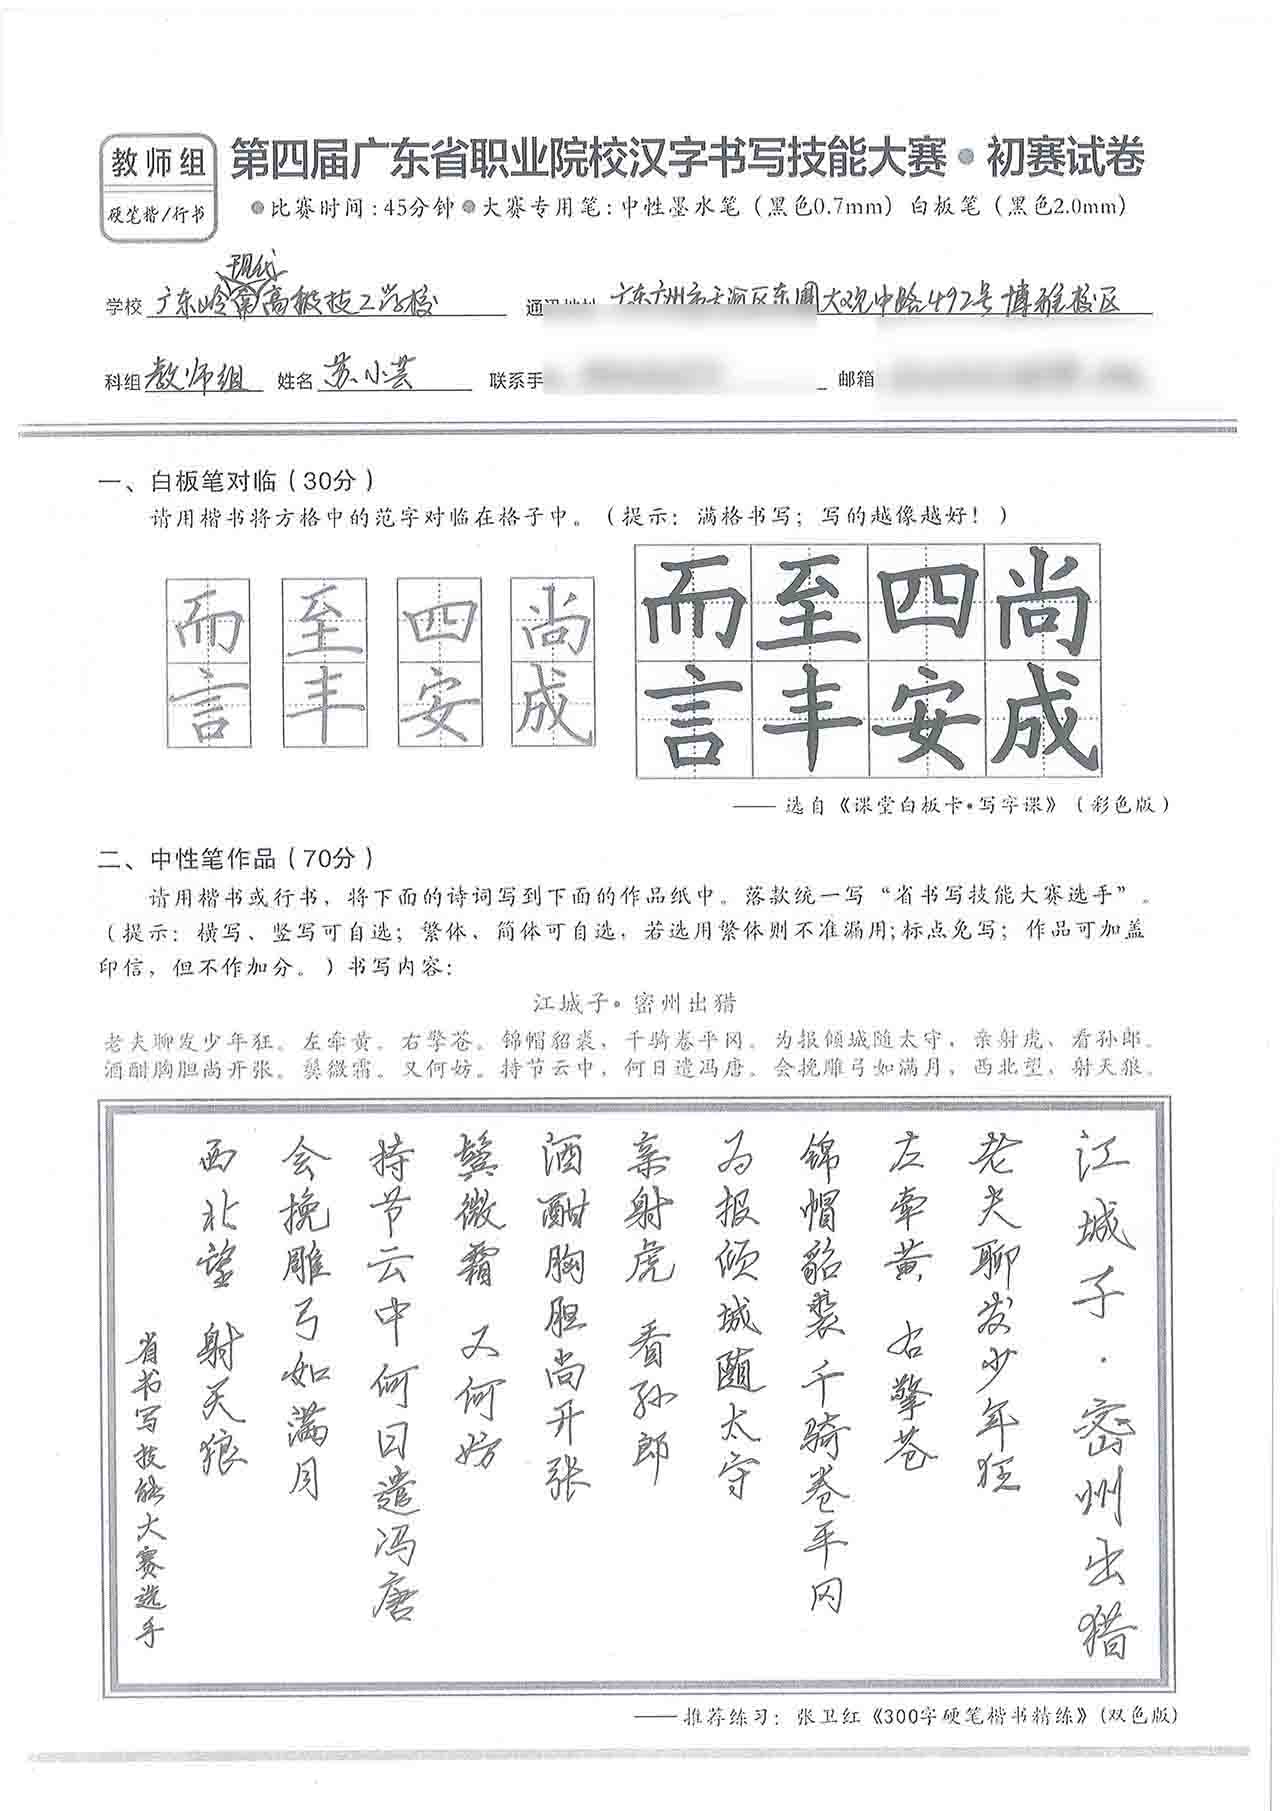 教师组
硬笔楷/行书
第四届广东省职业院校汉字书写技能大赛·初赛试卷
●比赛时间:45分钟●大赛专用笔:中性墨水笔(黑色0.7mm)白板笔(黑色2.0mm)
现代
学校 广东岭南高级技工学校 通讯地址 广东广州市天河区东圃大观中路492号博雅校区
科组 教师组 姓名 苏小芸 联系手 邮箱
一、白板笔对临(30分)
请用楷书将方格中的范字对临在格子中。(提示:满格书写;写的越像越好!)
而 至 四 尚 而至四尚
言 丰 安 成 言丰安成
——选自《课堂白板卡·写字课》(彩色版)
二、中性笔作品(70分)
请用楷书或行书,将下面的诗词写到下面的作品纸中。落款统一写“省书写技能大赛选手”。
(提示:横写、竖写可自选;繁体、简体可自选,若选用繁体则不准漏用;标点免写;作品可加盖
印信,但不作加分。)书写内容:
江城子·密州出猎
老夫聊发少年狂。左牵黄。右擎苍。锦帽貂裘,千骑卷平冈。为报倾城随太守,亲射虎、看孙郎。
酒酣胸胆尚开张。鬓微霜。又何妨。持节云中,何日遣冯唐。会挽雕弓如满月,西北望,射天狼。
江城子·密州出猎
老夫聊发少年狂
左牵黄 右擎苍
锦帽貂裘千骑卷平冈
为报倾城随太守
亲射虎 看孙郎
酒酣胸胆尚开张
鬓微霜 又何妨
持节云中何日遣冯唐
会挽雕弓如满月
西北望 射天狼
省书写技能大赛选手
——推荐练习:张卫红《300字硬笔楷书精练》(双色版)